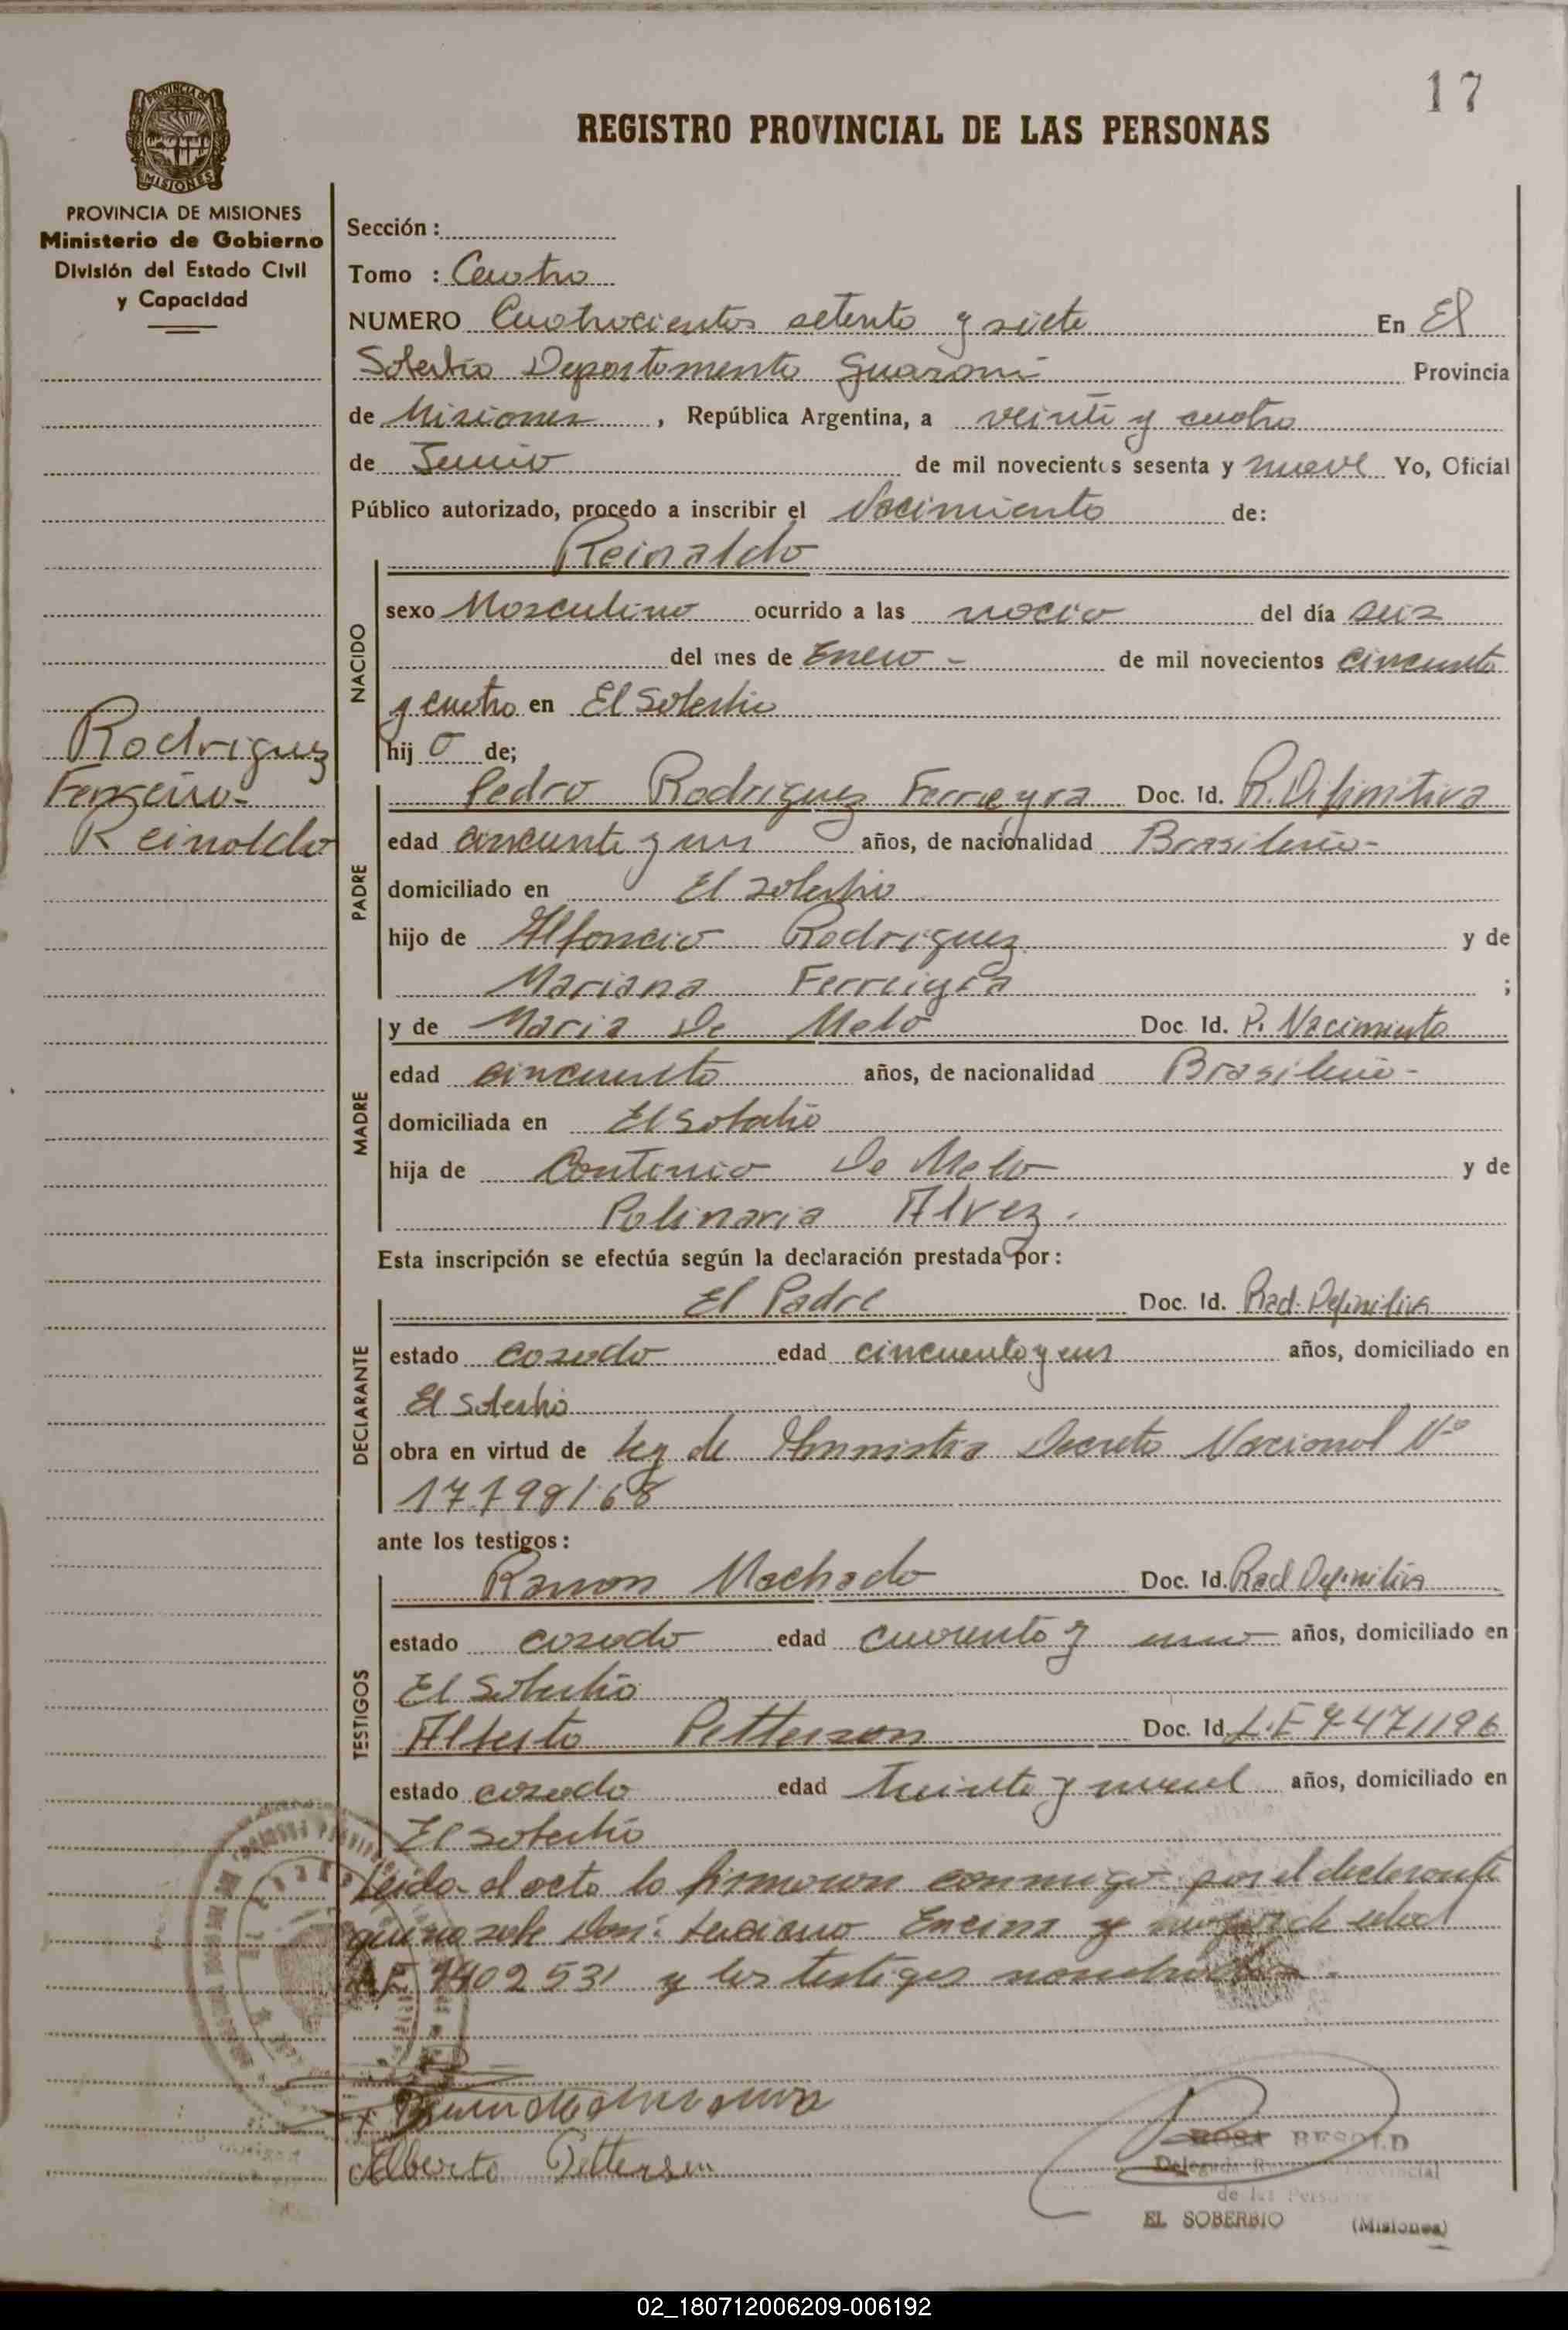 17
REGISTRO PROVINCIAL DE LAS PERSONAS
PROVINCIA DE MISIONES
MISIONES
PROVINCIA DE MISIONES
Ministerio de Gobierno
División del Estado Civil
y Capacidad
Sección :
Tomo : Cuatro
NUMERO Cuatrocientos setenta y siete En El
Soberbio Departamento Guarani Provincia
de Misiones , República Argentina, a veinte y cuatro
de Junio de mil novecientos sesenta y nueve Yo, Oficial
Público autorizado, procedo a inscribir el Nacimiento de:
Reinaldo
NACIDO
sexo Masculino ocurrido a las del día seis
del mes de Enero - de mil novecientos cincuenta
y cuatro en El Soberbio
hij o de;
Rodriguez
Ferreira-
Reinaldo
PADRE
Pedro Rodriguez Ferreyra Doc. Id. R. Difinitiva
edad cincuenta y un años, de nacionalidad Brasileño-
domiciliado en El Soberbio
hijo de Alfoncio Rodriguez y de
Mariana Ferreigra ;
MADRE
y de Maria De Melo Doc. Id. P. Nacimiento
edad cincuenta años, de nacionalidad Brasileña-
domiciliada en El Soberbio
hija de De Melo y de
Polinaria Alvez.
Esta inscripción se efectúa según la declaración prestada por :
DECLARANTE
El Padre Doc. Id. Rad. Definitiva
estado casado edad cincuenta y un años, domiciliado en
El Soberbio
obra en virtud de Ley de Amnistia Decreto Nacional Nº
17.798/68
ante los testigos :
TESTIGOS
Ramon Machado Doc. Id. Rad Definitiva
estado casado edad cuarenta y uno años, domiciliado en
El Soberbio
Alberto Petterson Doc. Id. L.E 7471196
estado casado edad treinta y nueve años, domiciliado en
El Soberbio
Leida el acta la firmaron conmigo por el declarante
que no sabe Don: Luciano Encina y mayor de edad
L.E. 7402531 y los testigos nombrados.
Alberto Pettersen
ROSA BESOLD
Delegada Provincial
de las Personas
EL SOBERBIO (Misiones)
02_180712006209-006192